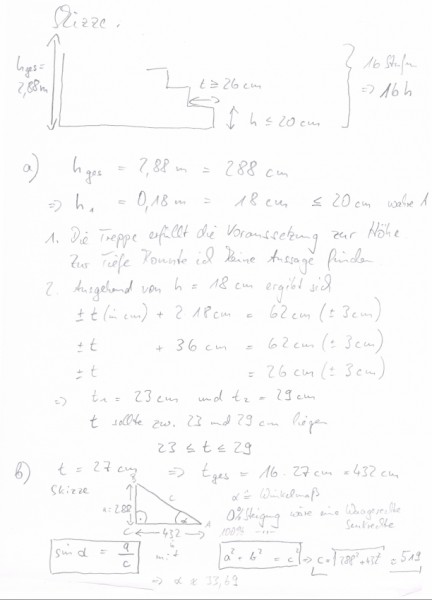 Skizze.
hges = 2,88m
t ≥ 26 cm
h ≤ 20 cm
16 Stufen
=> 16 h
a) hges = 2,88m = 288 cm
=> h1 = 0,18m = 18 cm ≤ 20 cm wahre A
1. Die Treppe erfüllt die Voraussetzung zur Höhe
Zur Tiefe konnte ich keine Aussage finden
2. Ausgehend von h = 18 cm ergibt sich
± t (in cm) + 2 18 cm = 62 cm (± 3 cm)
± t + 36 cm = 62 cm (± 3 cm)
± t = 26 cm (± 3 cm)
=> t1 = 23 cm und t2 = 29 cm
t sollte zw. 23 und 29 cm liegen
23 ≤ t ≤ 29
b) t = 27 cm => tges = 16 · 27 cm = 432 cm
Skizze
B
a=288
c
α
C
← 432 →
b
A
α ≙ Winkelmaß
0% Steigung wäre eine Waagerechte
100% Senkrechte
sin α = a/c
mit
a² + b² = c²
=> c = √288² + 432² = 519
=> α ≈ 33,69